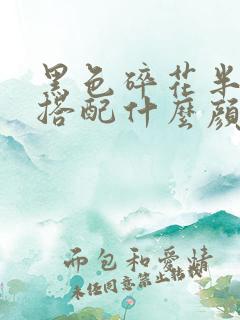 黑色碎花半
搭配什麼顏
而包和愛情
未经同意禁止转载